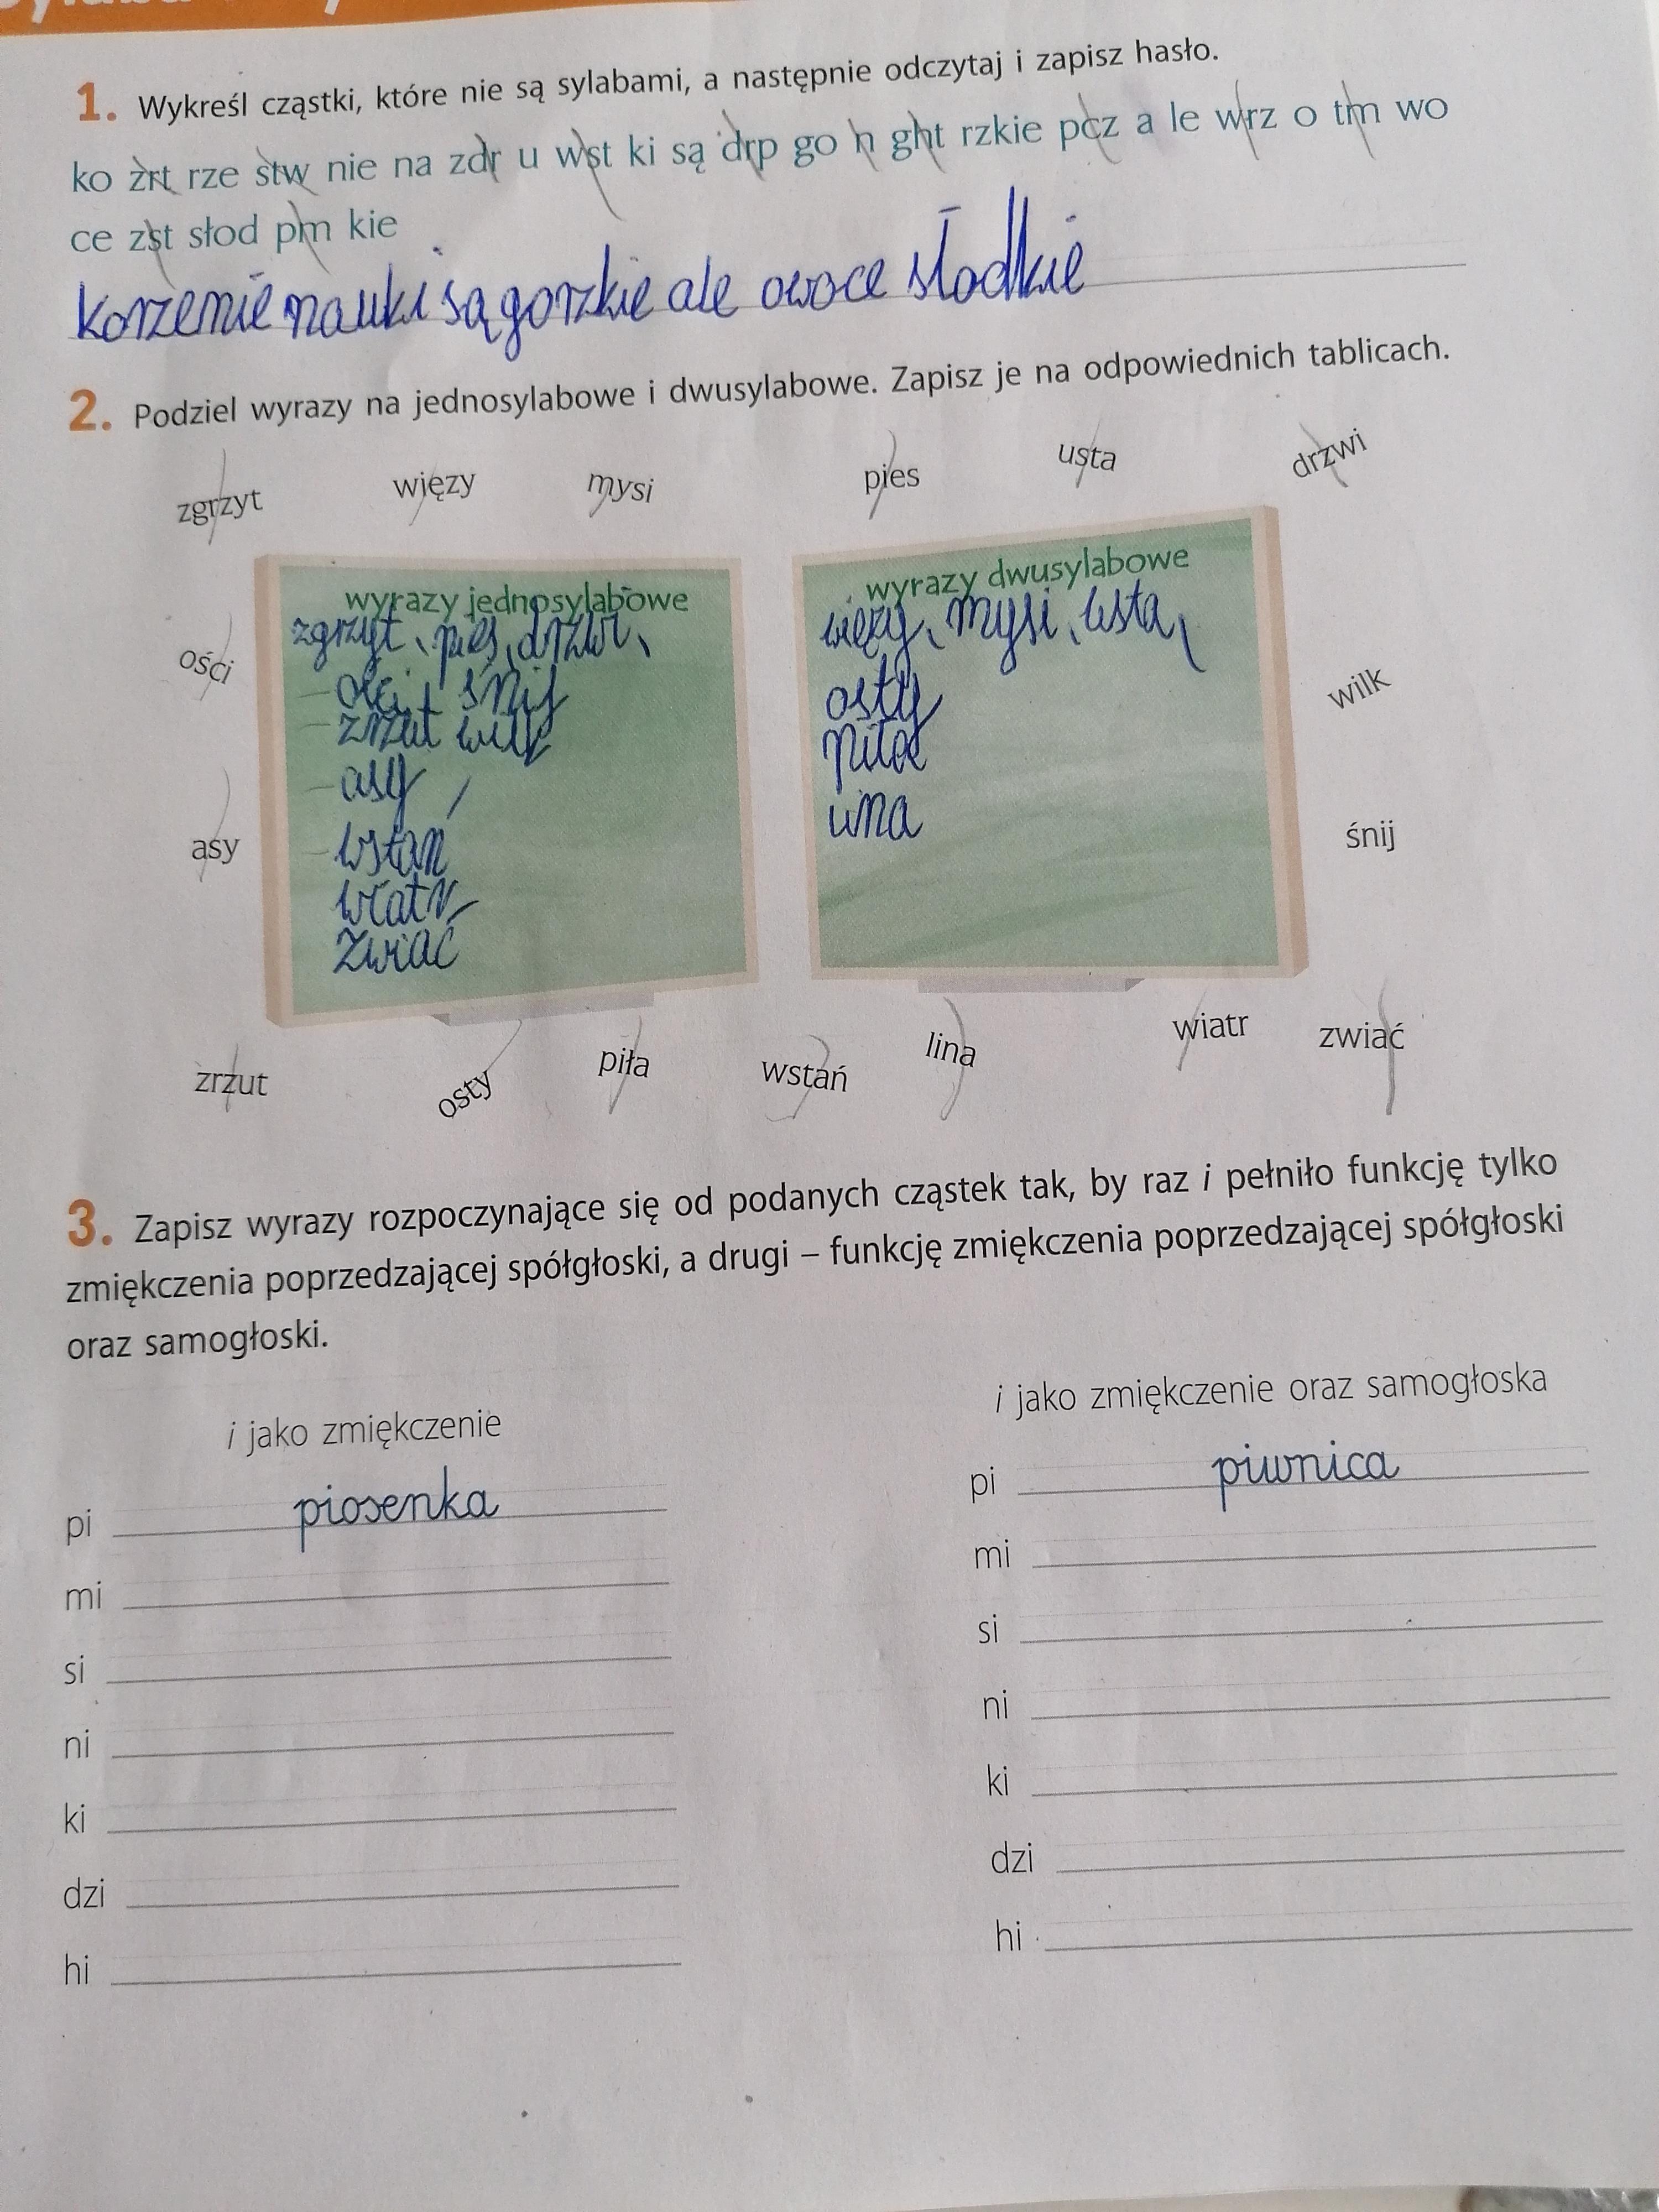 1. Wykreśl cząstki, które nie są sylabami, a następnie odczytaj i zapisz hasło.
ko żrt rze stw nie na zdr u wst ki są drp go n ght rzkie pcz a le wrz o tm wo
ce zst słod pm kie
korzenie nauki są gorzkie ale owoce słodkie
2. Podziel wyrazy na jednosylabowe i dwusylabowe. Zapisz je na odpowiednich tablicach.
zgrzyt więzy mysi pies usta drzwi
wyrazy jednosylabowe
zgrzyt, pies, drzwi,
śnij
zrzut wilk
asy
wstań
wiatr
zwiać
wyrazy dwusylabowe
więzy, mysi, usta,
osty
piła
lina
ości
asy
wilk
śnij
zrzut osty piła wstań lina wiatr zwiać
3. Zapisz wyrazy rozpoczynające się od podanych cząstek tak, by raz i pełniło funkcję tylko
zmiękczenia poprzedzającej spółgłoski, a drugi – funkcję zmiękczenia poprzedzającej spółgłoski
oraz samogłoski.
i jako zmiękczenie
pi piosenka
mi
si
ni
ki
dzi
hi
i jako zmiękczenie oraz samogłoska
pi piwnica
mi
si
ni
ki
dzi
hi